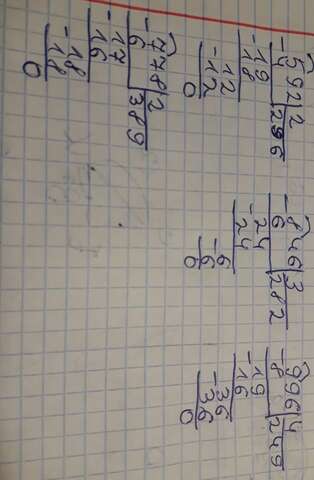 592|2
-4 296
-19
18
-12
12
0
846|3
-6 282
-24
24
-6
6
0
996|4
-8 249
-19
16
-36
36
0
778|2
-6 389
-17
16
-18
18
0